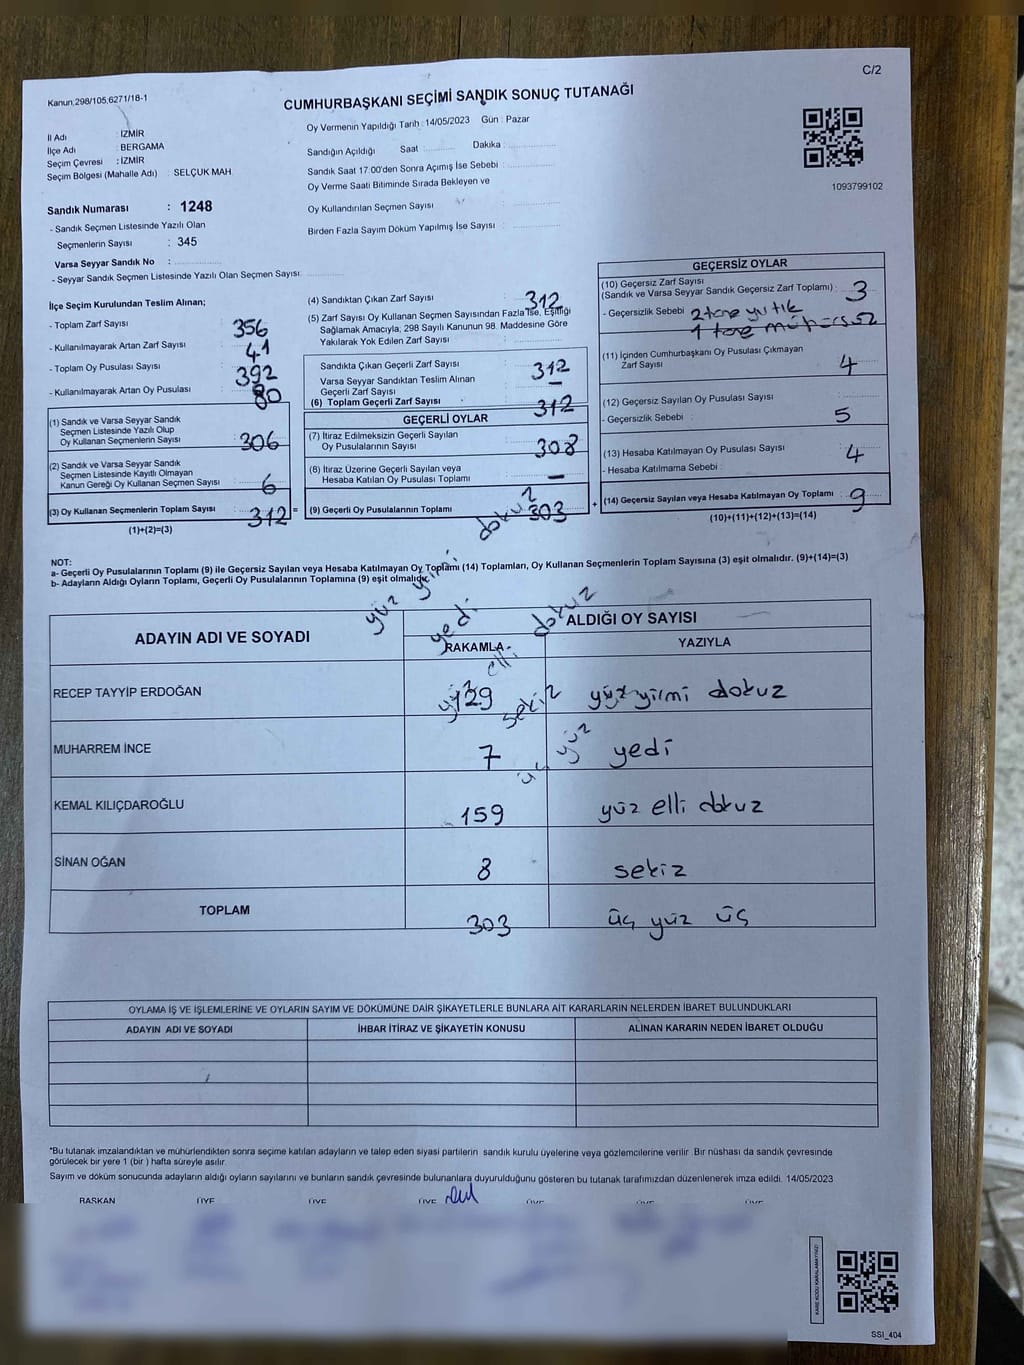 C/2
Kanun,298/105,6271/18-1
CUMHURBAŞKANI SEÇİMİ SANDIK SONUÇ TUTANAĞI
İl Adı : İZMİR
İlçe Adı : BERGAMA
Seçim Çevresi : İZMİR
Seçim Bölgesi (Mahalle Adı) : SELÇUK MAH.
Oy Vermenin Yapıldığı Tarih : 14/05/2023 Gün : Pazar
Sandığın Açıldığı Saat Dakika :
Sandık Saat 17:00'den Sonra Açımış İse Sebebi :
Oy Verme Saati Bitiminde Sırada Bekleyen ve
Oy Kullandırılan Seçmen Sayısı :
Birden Fazla Sayım Döküm Yapılmış İse Sayısı :
1093799102
Sandık Numarası : 1248
- Sandık Seçmen Listesinde Yazılı Olan
Seçmenlerin Sayısı : 345
Varsa Seyyar Sandık No :
- Seyyar Sandık Seçmen Listesinde Yazılı Olan Seçmen Sayısı:
İlçe Seçim Kurulundan Teslim Alınan;
- Toplam Zarf Sayısı : 356
- Kullanılmayarak Artan Zarf Sayısı : 41
- Toplam Oy Pusulası Sayısı : 392
- Kullanılmayarak Artan Oy Pusulası : 80
(1) Sandık ve Varsa Seyyar Sandık
Seçmen Listesinde Yazılı Olup
Oy Kullanan Seçmenlerin Sayısı : 306
(2) Sandık ve Varsa Seyyar Sandık
Seçmen Listesinde Kayıtlı Olmayan
Kanun Gereği Oy Kullanan Seçmen Sayısı : 6
(3) Oy Kullanan Seçmenlerin Toplam Sayısı : 312 =
(1)+(2)=(3)
(4) Sandıktan Çıkan Zarf Sayısı : 312
(5) Zarf Sayısı Oy Kullanan Seçmen Sayısından Fazla İse, Eşitliği
Sağlamak Amacıyla, 298 Sayılı Kanunun 98. Maddesine Göre
Yakılarak Yok Edilen Zarf Sayısı :
Sandıkta Çıkan Geçerli Zarf Sayısı : 312
Varsa Seyyar Sandıktan Teslim Alınan
Geçerli Zarf Sayısı : —
(6) Toplam Geçerli Zarf Sayısı : 312
GEÇERLİ OYLAR
(7) İtiraz Edilmeksizin Geçerli Sayılan
Oy Pusulalarının Sayısı : 308
(8) İtiraz Üzerine Geçerli Sayılan veya
Hesaba Katılan Oy Pusulası Toplamı : —
(9) Geçerli Oy Pusulalarının Toplamı : 303 +
GEÇERSİZ OYLAR
(10) Geçersiz Zarf Sayısı
(Sandık ve Varsa Seyyar Sandık Geçersiz Zarf Toplamı) : 3
- Geçersizlik Sebebi : 2 tane yırtık
1 tane mühürsüz
(11) İçinden Cumhurbaşkanı Oy Pusulası Çıkmayan
Zarf Sayısı : 4
(12) Geçersiz Sayılan Oy Pusulası Sayısı :
- Geçersizlik Sebebi : 5
(13) Hesaba Katılmayan Oy Pusulası Sayısı : 4
- Hesaba Katılmama Sebebi :
(14) Geçersiz Sayılan veya Hesaba Katılmayan Oy Toplamı : 9
(10)+(11)+(12)+(13)=(14)
NOT:
a- Geçerli Oy Pusulalarının Toplamı (9) ile Geçersiz Sayılan veya Hesaba Katılmayan Oy Toplamı (14) Toplamları, Oy Kullanan Seçmenlerin Toplam Sayısına (3) eşit olmalıdır. (9)+(14)=(3)
b- Adayların Aldığı Oyların Toplamı, Geçerli Oy Pusulalarının Toplamına (9) eşit olmalıdır.
yüz yirmi dokuz
yedi
yüz elli dokuz
sekiz
üç yüz
ADAYIN ADI VE SOYADI
ALDIĞI OY SAYISI
RAKAMLA
YAZIYLA
RECEP TAYYİP ERDOĞAN 129 yüz yirmi dokuz
MUHARREM İNCE 7 yedi
KEMAL KILIÇDAROĞLU 159 yüz elli dokuz
SİNAN OĞAN 8 sekiz
TOPLAM 303 üç yüz üç
OYLAMA İŞ VE İŞLEMLERİNE VE OYLARIN SAYIM VE DÖKÜMÜNE DAİR ŞİKAYETLERLE BUNLARA AİT KARARLARIN NELERDEN İBARET BULUNDUKLARI
ADAYIN ADI VE SOYADI
İHBAR İTİRAZ VE ŞİKAYETİN KONUSU
ALINAN KARARIN NEDEN İBARET OLDUĞU
*Bu tutanak imzalandıktan ve mühürlendikten sonra seçime katılan adayların ve talep eden siyasi partilerin sandık kurulu üyelerine veya gözlemcilerine verilir. Bir nüshası da sandık çevresinde
görülecek bir yere 1 (bir) hafta süreyle asılır.
Sayım ve döküm sonucunda adayların aldığı oyların sayılarını ve bunların sandık çevresinde bulunanlara duyurulduğunu gösteren bu tutanak tarafımızdan düzenlenerek imza edildi. 14/05/2023
BAŞKAN ÜYE ÜYE ÜYE ÜYE ÜYE
KARE KODU KARALAMAYINIZ!
SSİ_404